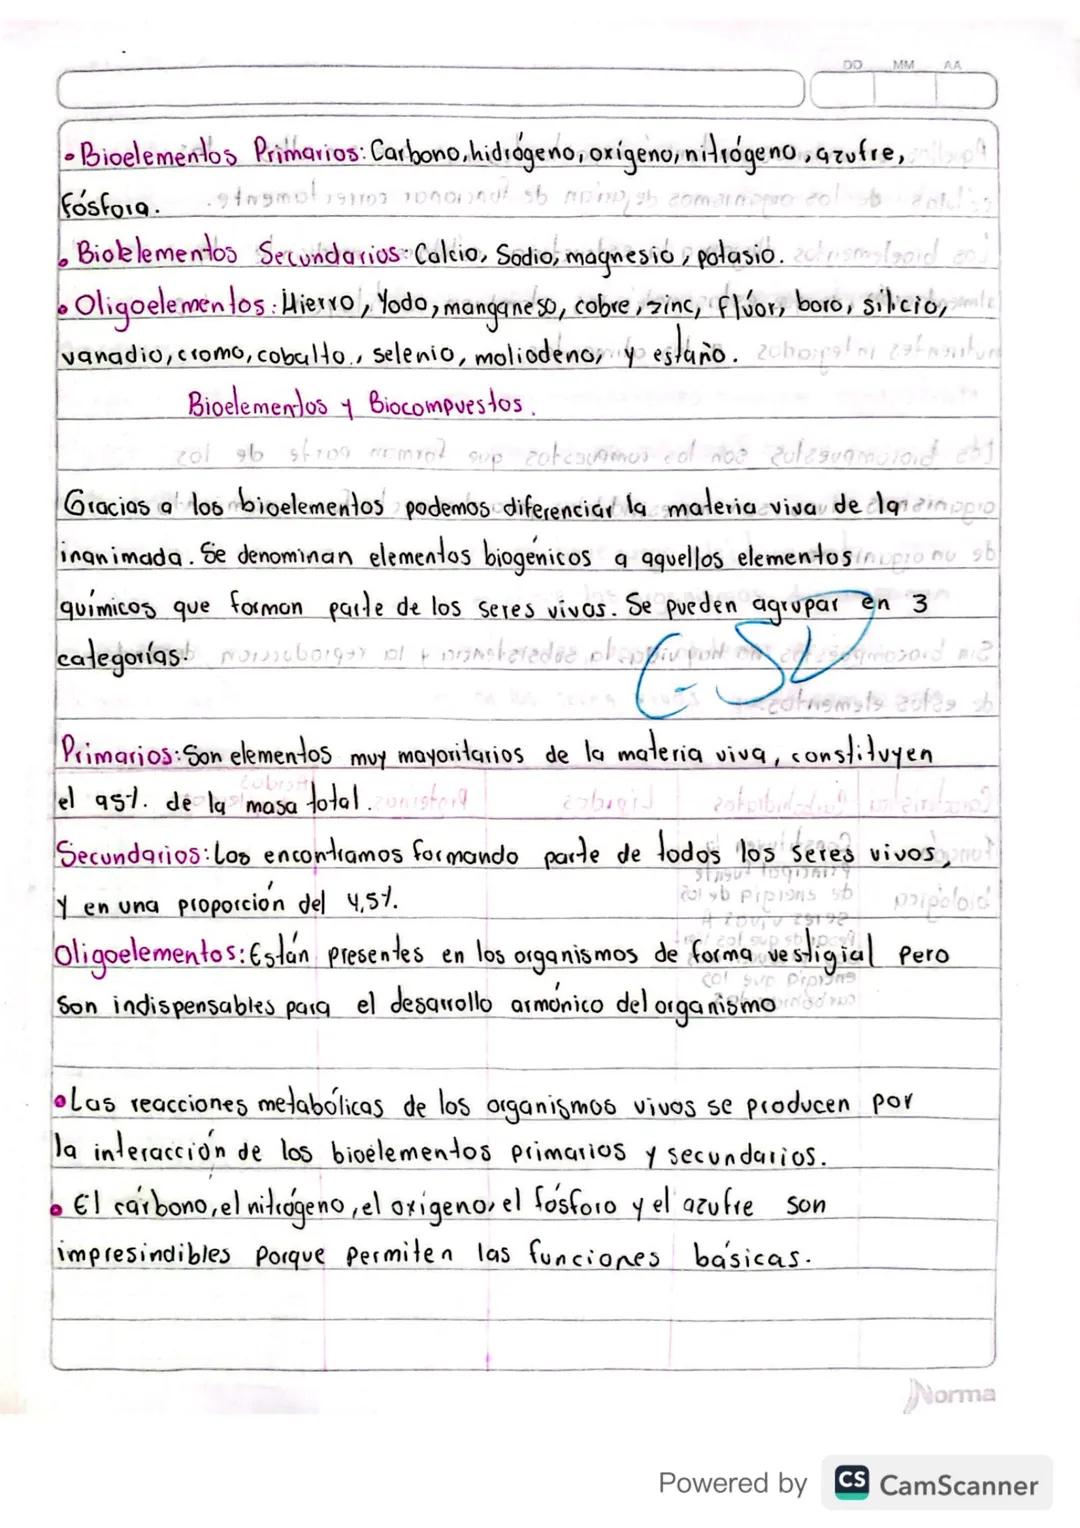 DD MM AA
• Bioelementos Primarios: Carbono, hidrógeno, oxígeno, nitrógeno, azufre,
fósforo.
• Bioelementos Secundarios: Calcio, Sodio, magnesio, potasio.
• Oligoelementos: Hierro, Yodo, manganeso, cobre, zinc, flúor, boro, silicio,
vanadio, cromo, cobalto., selenio, moliodeno, y estaño.
Bioelementos y Biocompuestos.
Gracias a los bioelementos podemos diferenciar la materia viva de la
inanimada. Se denominan elementos biogénicos a aquellos elementos
químicos que forman parte de los seres vivos. Se pueden agrupar en 3
categorías.
Primarios: Son elementos muy mayoritarios de la materia viva, constituyen
el 95%. de la masa total.
Secundarios: Los encontramos formando parte de todos los seres vivos,
y en una proporción del 4,5%.
Oligoelementos: Están presentes en los organismos de forma vestigial pero
son indispensables para el desarrollo armónico del organismo
• Las reacciones metabólicas de los organismos vivos se producen por
la interacción de los bioelementos primarios y secundarios.
• El cárbono, el nitrógeno, el oxígeno, el fósforo y el azufre son
impresindibles porque permiten las funciones básicas.
Norma
Powered by CS CamScanner